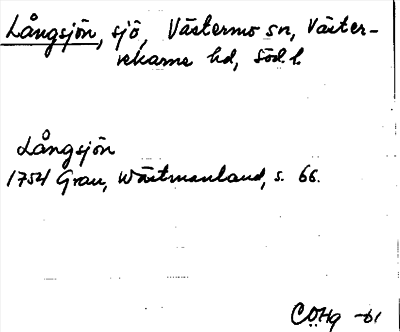 Långsjön, sjö, Västermo sn, Väster-
rekarne hd, Söd l.
Långsjön
1754 Grau, Wästmanland, s. 66.
CÖHg -61